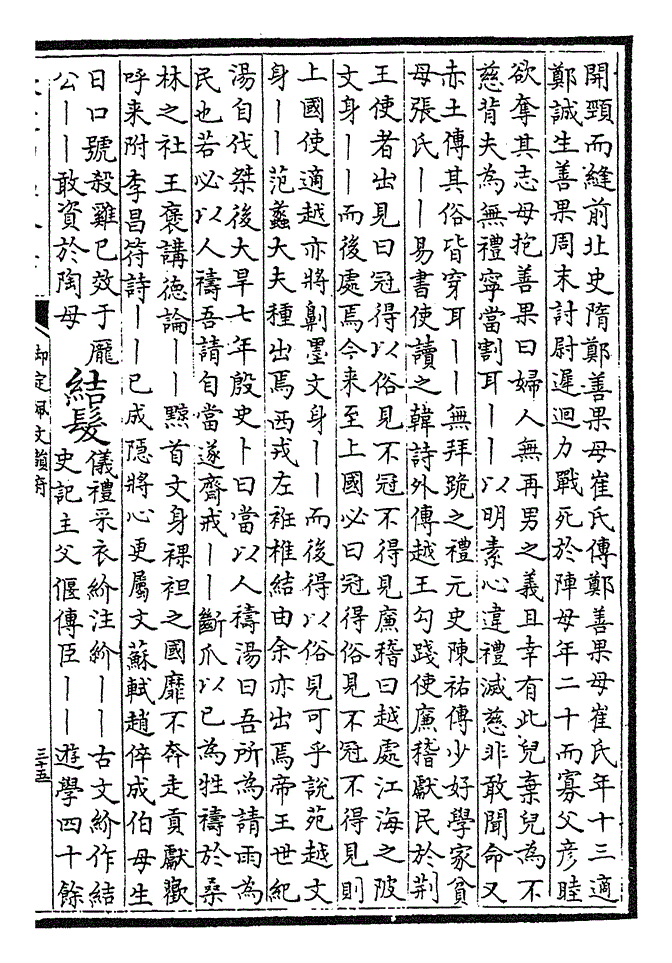 開頸而縫前北史隋鄭善果母崔氏傳鄭善果母崔氏年十三適
鄭誠生善果周末討尉遲迥力戰死於陣母年二十而寡父彦睦
欲奪其志母抱善果曰婦人無再男之義且幸有此兒棄兒為不
慈背夫為無禮寧當割耳——以明素心違禮滅慈非敢聞命又
赤土傳其俗皆穿耳——無拜跪之禮元史陳祐傳少好學家貧
母張氏——易書使讀之韓詩外傳越王勾踐使廉稽獻民於荆
王使者出見曰冠得以俗見不冠不得見廉稽曰越處江海之陂
文身——而後處焉今来至上國必曰冠得俗見不冠不得見則
上國使適越亦將劓墨文身——而後得以俗見可乎說苑越文
身——范蠡大夫種出焉西戎左袵椎結由余亦出焉帝王世紀
湯自伐桀後大旱七年殷史卜曰當以人禱湯曰吾所為請雨為
民也若必以人禱吾請自當遂齋戒——斷爪以已為牲禱於桑
林之社王褒講德論——黥首文身裸袒之國靡不奔走貢獻歡
呼来附李昌符詩——已成隠將心更屬文蘇軾趙倅成伯母生
日口號殺雞已效于龐
公——敢資於陶母
結髮
儀禮采衣紒注紒——古文紒作結
史記主父偃傳臣——遊學四十餘
御定佩文韻府
三十五